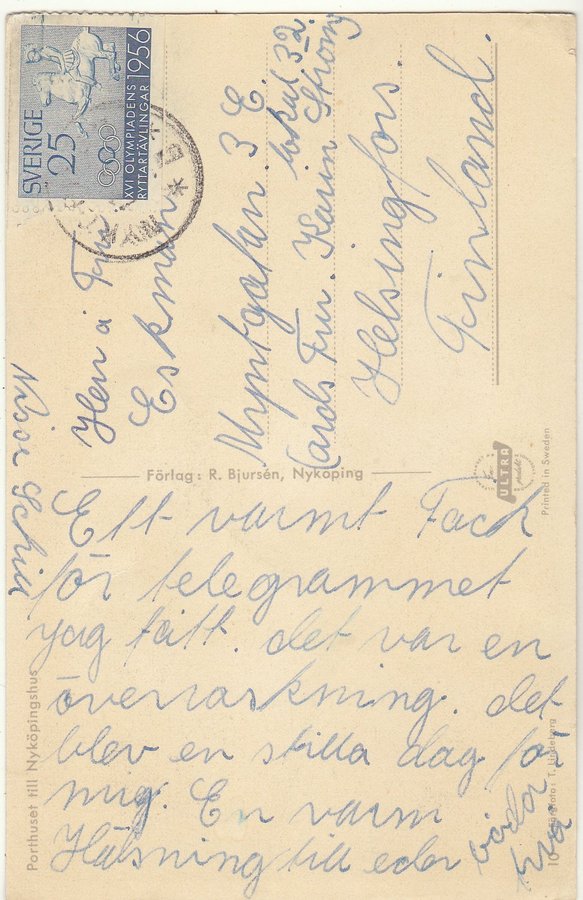 SVERIGE
25
XVI OLYMPIADENS
RYTTARTÄVLINGAR 1956
Herr å Fru
Eskman
Myntgatan 3 E.
lokal 32
Cards Fru. Karin Strömg
Helsingfors.
Finland.
Förlag: R. Bjursén, Nyköping
ULTRA
Printed in Sweden
Ett varmt Tack
för telegrammet
jag fått. det var en
överraskning. det
blev en stilla dag för
mig. En varm
Hälsning till eder båda
två
Porthuset till Nyköpingshus